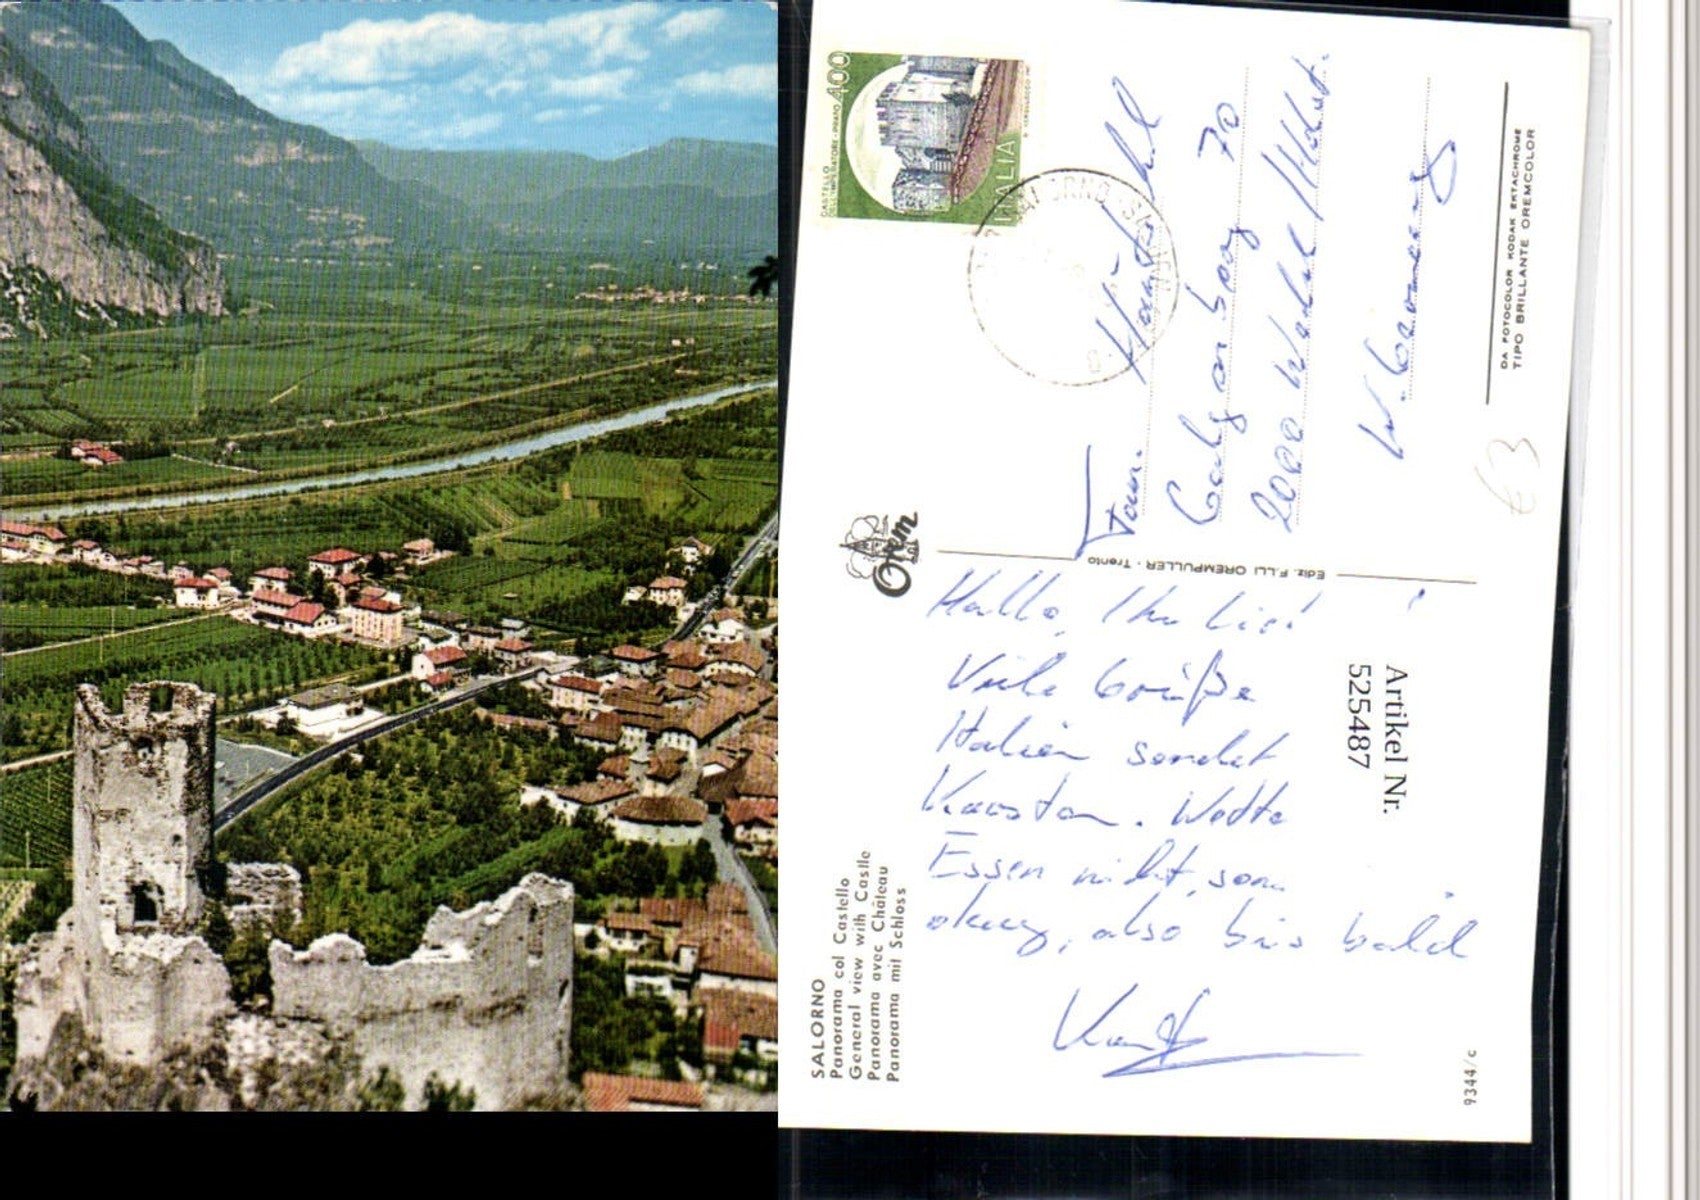 SALORNO
Panorama col Castello
General view with Castle
Panorama avec Château
Panorama mit Schloss
Orem
Ediz. F.LLI OREMPULLER - Trento
400
CASTELLO
DELL'IMPERATORE - PRATO
ITALIA
Fam.
70
2000
W. Germany
DA FOTOCOLOR KODAK EKTACHROME
TIPO BRILLANTE OREMCOLOR
€ 3
Hallo, Ihr
Viele Grüße
Italien sendet
Karsten. Wetter
Essen nicht, so
okay, also bis bald
Artikel Nr.
525487
9344/c